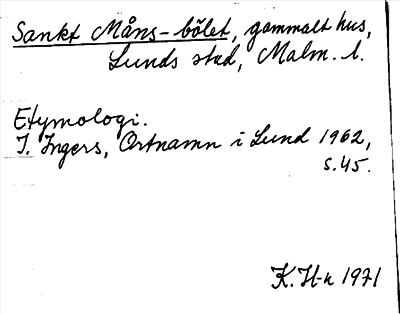 Sankt Måns-bölet, gammalt hus,
Lunds stad, Malm. l.
Etymologi.
I. Ingers, Ortnamn i Lund 1962,
s. 45.
K. H-n 1971